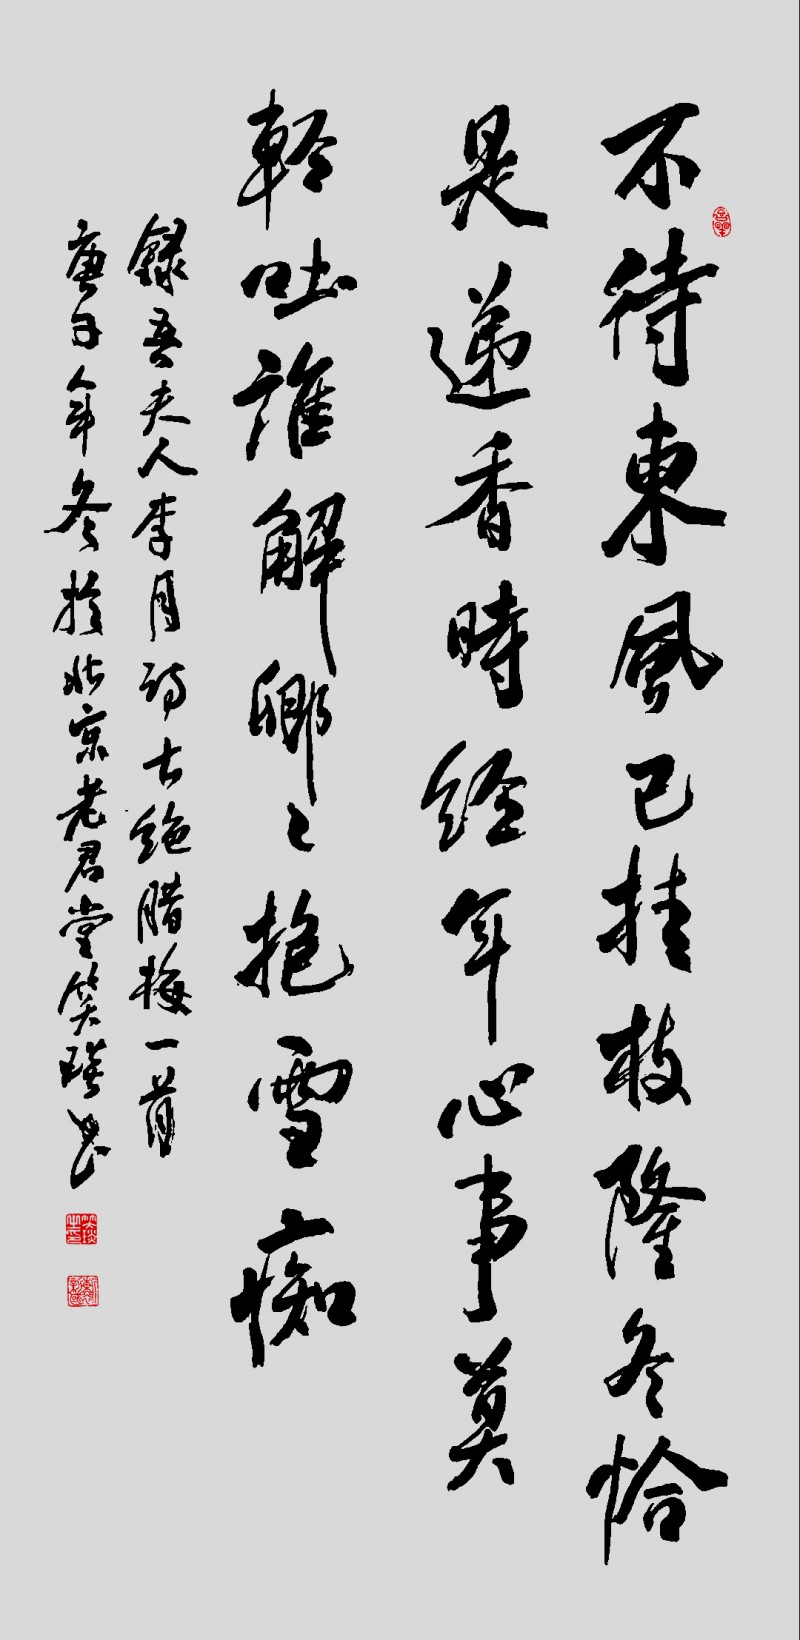 不待東風已挂枝隆冬恰
是递香時經年心事莫
輕吐誰解卿〻抱雪痴
録吾夫人李月詩七絶腊梅一首
庚子年冬於北京老君堂笑书